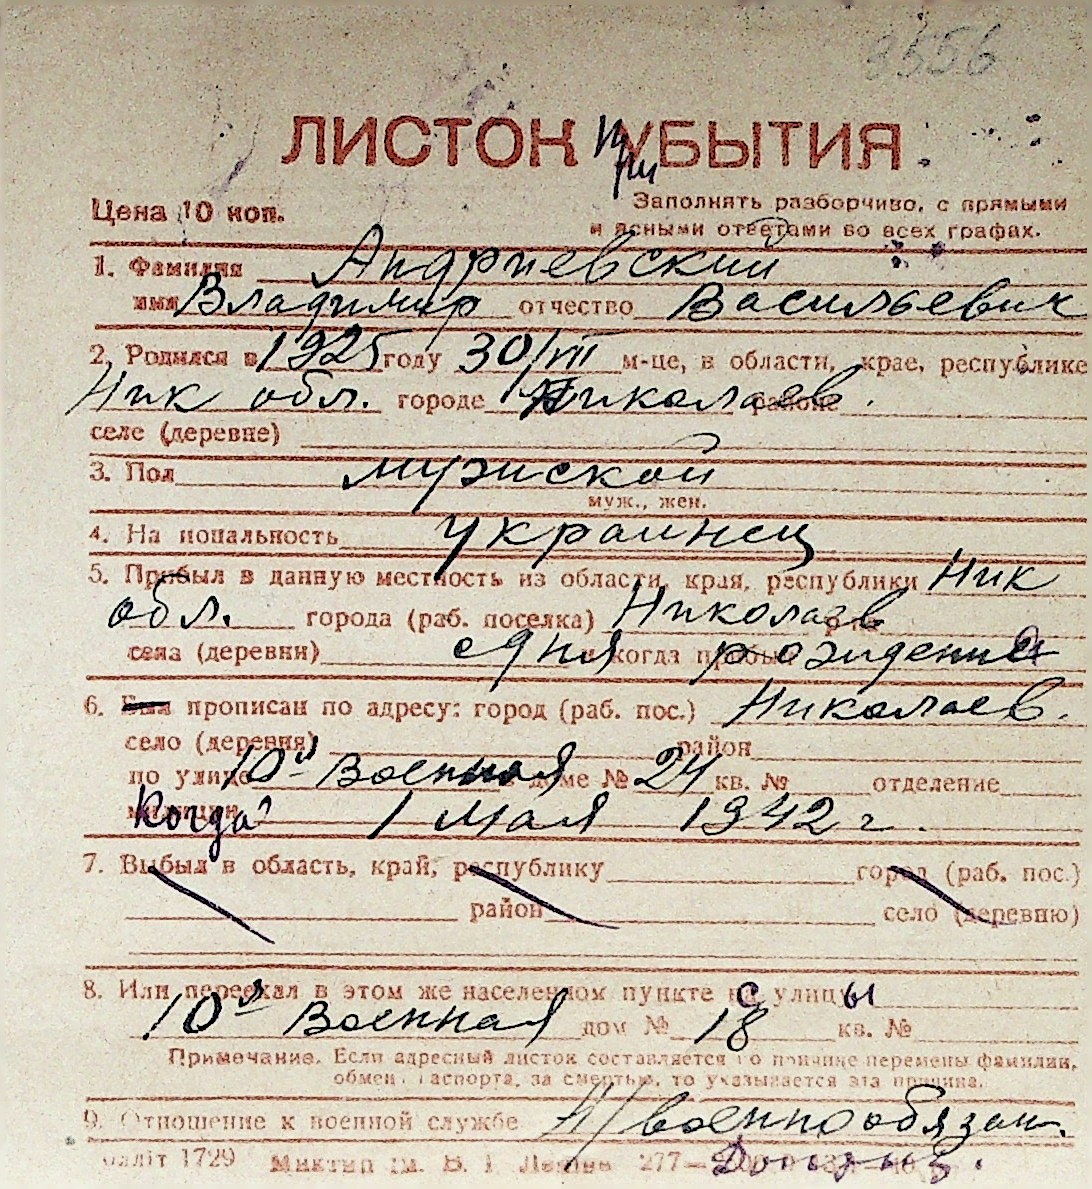 9556
ЛИСТОК При УБЫТИЯ
Цена 10 коп.
Заполнять разборчиво, с прямыми
и ясными ответами во всех графах.
1. Фамилия Андриевский
имя Владимир отчество Васильевич
2. Родился в 1925 году 30/VII м-це, в области, крае, республике
Ник обл. городе Николаев. районе
селе (деревне)
3. Пол мужской
муж., жен.
4. Национальность украинец
5. Прибыл в данную местность из области, края, республики Ник
обл. города (раб. поселка) Николаев
села (деревни) и когда прибыл с дня рождения
6. Был прописан по адресу: город (раб. пос.) Николаев.
село (деревня) район
по улице 10я Военная в доме № 24 кв. № отделение
милиции Когда? 1 мая 1942 г.
7. Выбыл в область, край, республику город (раб. пос.)
район село (деревню)
8. Или переехал в этом же населенном пункте с улицы
10я Военная дом № 18 кв. №
Примечание. Если адресный листок составляется по причине перемены фамилии,
обмена паспорта, за смертью, то указывается эта причина.
9. Отношение к военной службе Н/военнообязан.
Облліт 1729 Миктип ім. В. І. Леніна 277—